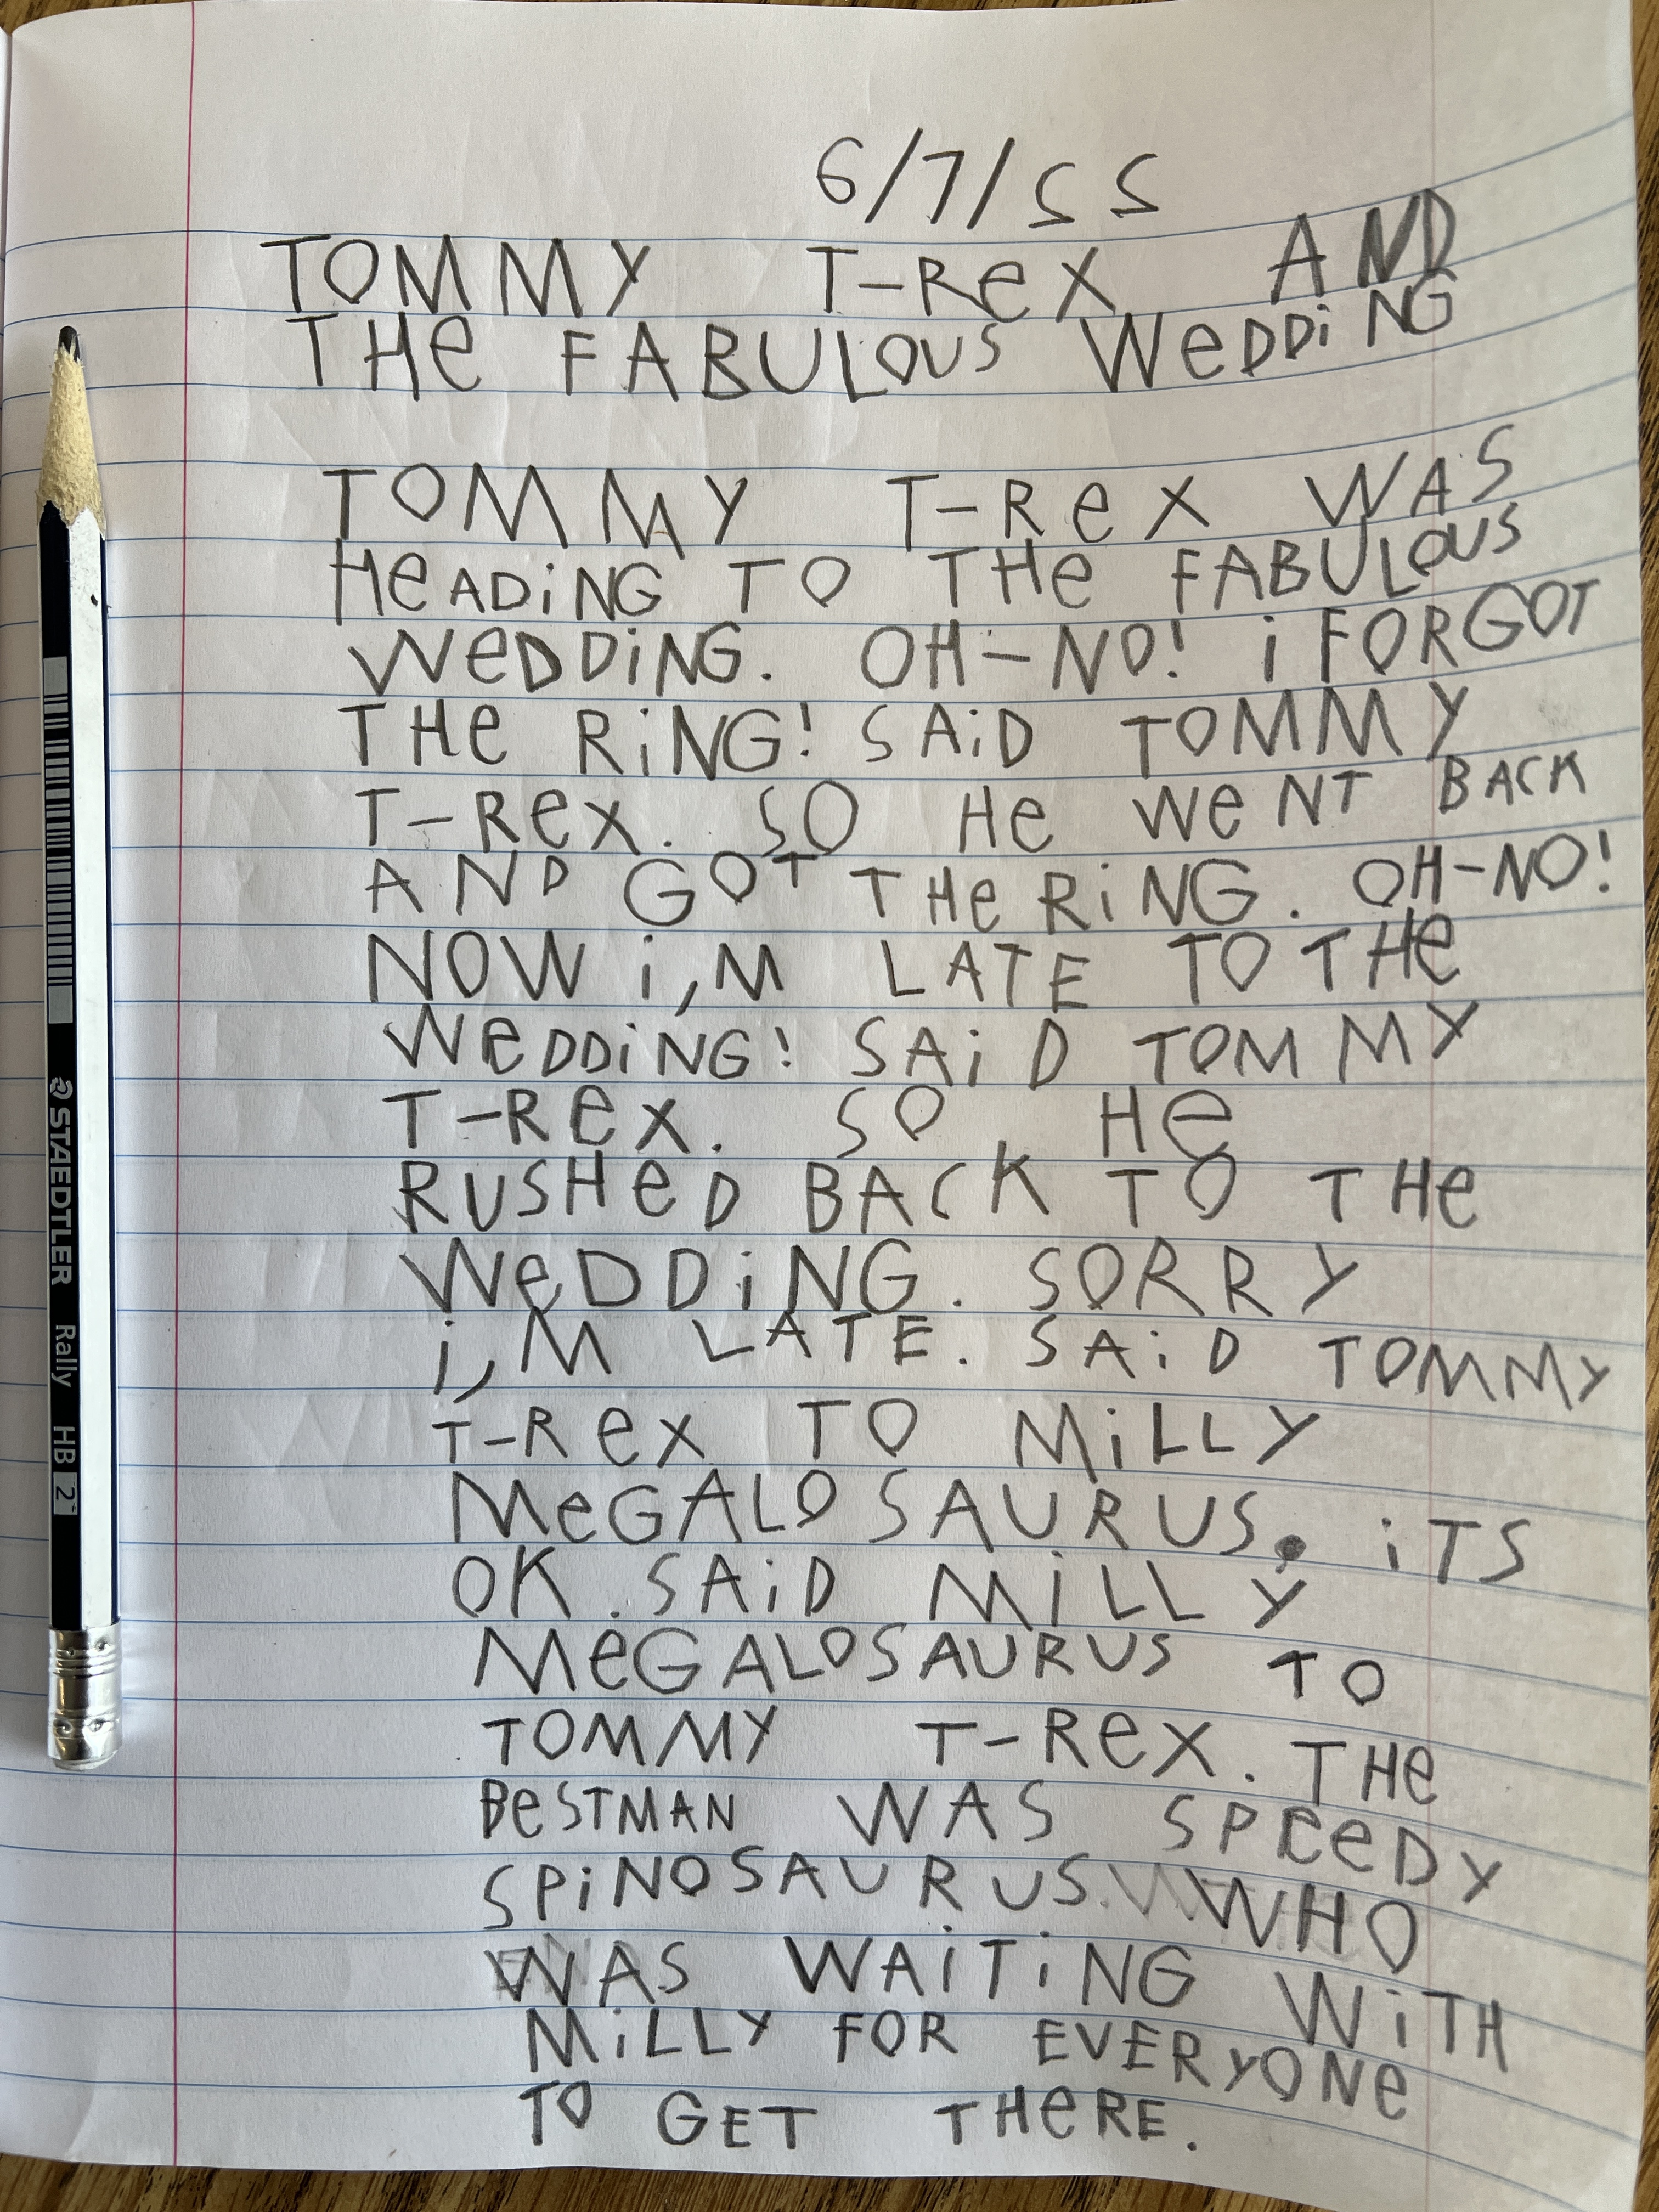 6/7/22
TOMMY T-ReX AND
THe FABULOUS WeDDiNG
TOMMY T-ReX WAS
HeADiNG TO THe FABULOUS
WeDDiNG. OH-NO! i FORGOT
THe RiNG! SAiD TOMMY
T-ReX. SO He WeNT BACK
AND GOT THe RiNG. OH-NO!
NOW i,M LATE TO THe
WeDDiNG! SAiD TOMMY
T-ReX. SO He
RUSHeD BACK TO THe
WeDDiNG. SORRY
i,M LATE. SAiD TOMMY
T-ReX TO MiLLY
MeGALOSAURUS. iTS
OK. SAiD MiLLY
MeGALOSAURUS TO
TOMMY T-ReX. THe
BeSTMAN WAS SPEeDY
SPiNOSAURUS. WHO
WAS WAiTiNG WiTH
MiLLY FOR EVERYONe
TO GET THeRE.
STAEDTLER Rally HB 2